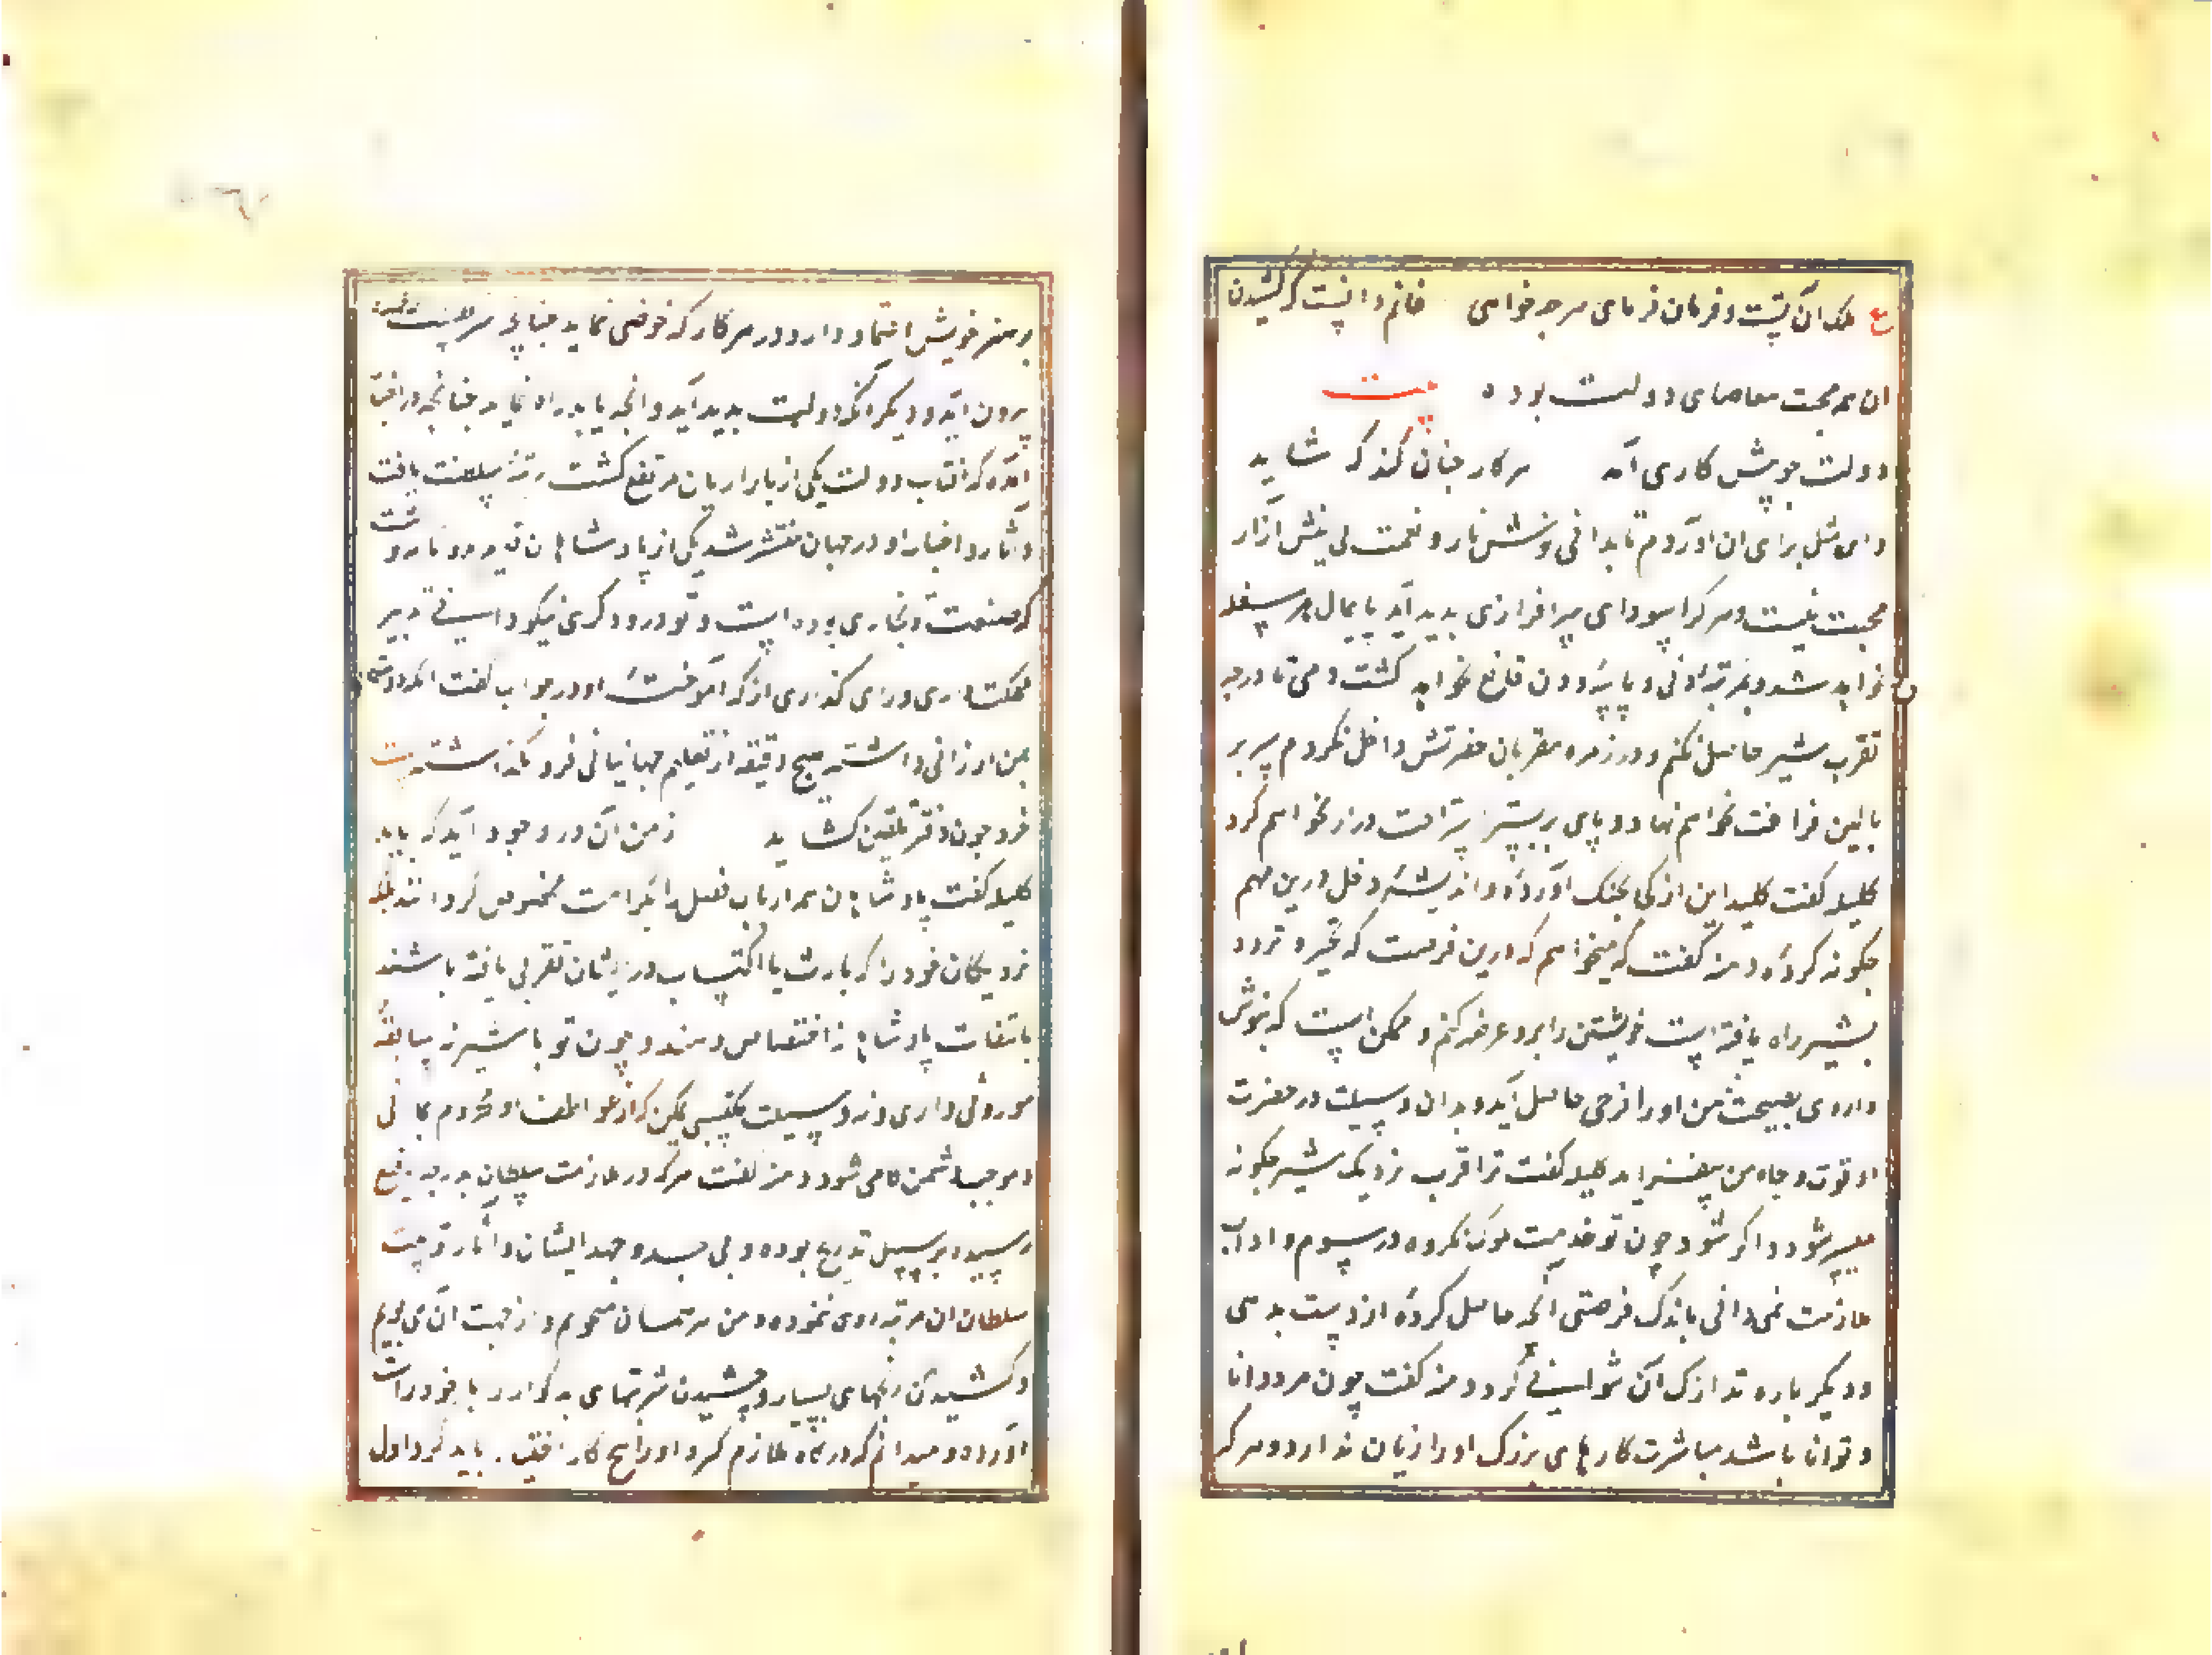 ع ملک آن تست و فرمان فرمای هر چه خواهی
ان همه محبت تقاضای دولت بوده بیت
دولت چو پیش کاری آمد هر کار چنان کند که شاید
و این مثل برای ان آوردم تا بدانی نوش نار و نعمت بی نیش آزار
محبت نیست و هر کرا سودای سرافرازی بدید آید پایمال هر سفله
نخواهد شد و بمرتبه ادنی و پایه دون قانع نخواهد گشت و من تا درجه
تقرب شیر حاصل نکنم و در زمره مقربان حضرتش داخل نکردم سر بر
بالین فراغت نخواهم نهاد و پای بر بستر استراحت دراز نخواهم کرد
کلیله گفت کلید این از کجا بچنگ آورده و اندیشه دخل درین مهم
چگونه کرده دمنه گفت که میخواهم که درین فرصت که تحیر و تردد
بشیر راه یافته است خویشتن را برو عرضه کنم و ممکن است که بنوش
داروی نصیحت من او را فرحی حاصل آید و بدان وسیلت در حضرت
او قوت و جاه من بیفزاید کلیله گفت ترا قرب نزدیک شیر چگونه
میسر شود و اگر شود چون تو خدمت ملوک نکرده و رسوم و اداب
ملازمت نمی دانی باندک فرصتی انچه حاصل کرده از دست بدهی
و دیگر باره تدارک آن نتوانی کرد دمنه گفت چون مرد دانا
و توانا باشد مباشرت کارهای بزرگ او را زیان ندارد و هر که
بر هنر خویش اعتماد دارد در هر کار که خوض نماید چنانچه شرطست
بیرون آید و دیگر آنکه دولت بدید آید و انچه باید راه نماید چنانچه در اخبار
آمده که افتاب دولت یکی از بازاریان مرتفع گشت رتبه سلطنت یافت
و آثار و اخبار او در جهان منتشر شد یکی از پادشاهان قدیم بدو نامه نوشت
که صنعت تو نجاری بوده است و تو درودگری نیکو دانی تدبیر
مملکت داری و رای گذاری از که آموخته او در جواب گفت انکه دولت
بمن ارزانی داشته هیچ دقیقه از تعلیم جهانبانی فرو نگذاشته بیت
خرد چون دفتر تلقین کشاید ز من آن در وجود آید که باید
کلیله گفت پادشاهان همه ارباب فضل را بکرامت مخصوص نگردانند بلکه
نزدیکان خود را که بارث یا اکتساب در ایشان تقربی یافته باشند
بالتفات پادشاهانه اختصاص دهند و چون تو با شیر نه سابقه
موروثی داری و نه وسیلت مکتسبی ممکن که از عواطف او محروم بمانی
و موجب دشمن کامی شود دمنه گفت هر که در ملازمت سلطان بدرجه رفیع
رسیده بر سبیل تدریج بوده و بی جد و جهد ایشان و آثار تربیت
سلطان ان مرتبه روی ننموده و من هم همان میجویم و از جهت آن می پویم
و کشیدن رنجهای بسیار و چشیدن شربتهای بدگوار را با خود راست
آورده و میدانم که در گاه ملازم گردد او را پنج کار باید کرد اول